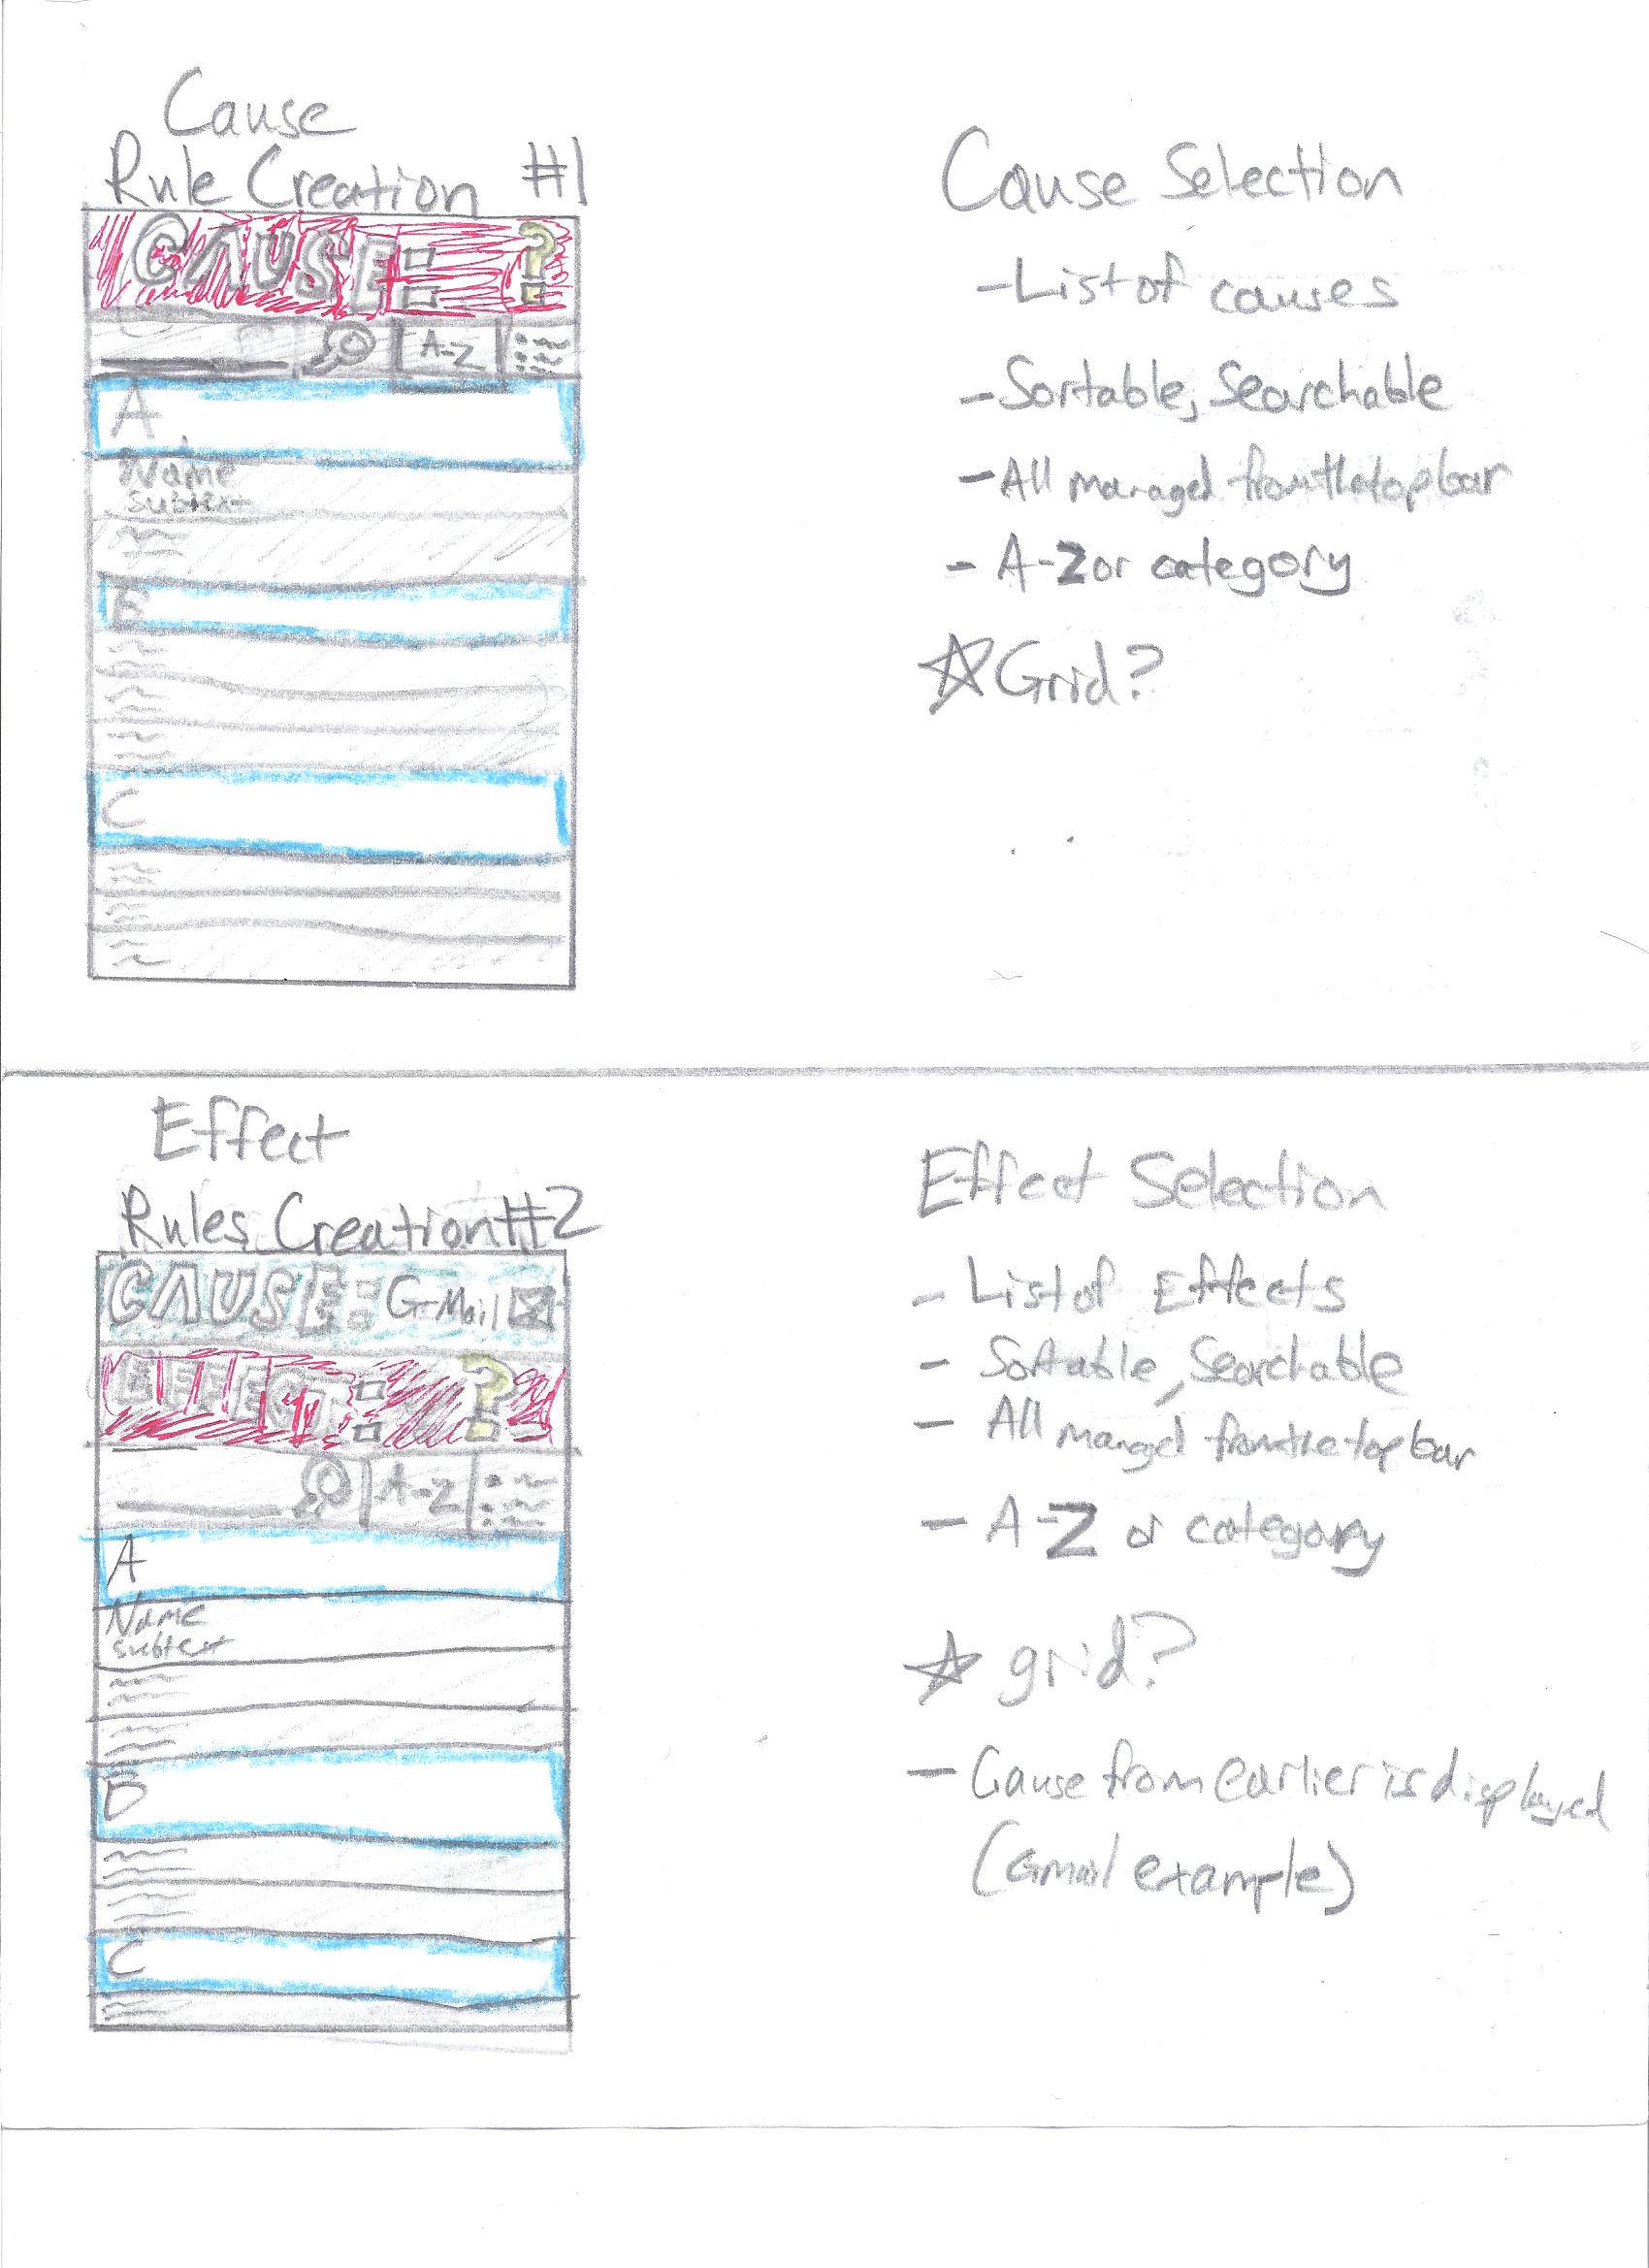 Cause
Rule Creation #1
CAUSE: ?
A-Z
A
Name
Subtext
C
Cause Selection
- List of causes
- Sortable, Searchable
- All managed from the top bar
- A-Z or category
☆ Grid?
Effect
Rules Creation #2
CAUSE: G-Mail
EFFECT: ?
A-Z
A
Name
subtext
C
Effect Selection
- List of Effects
- Sortable, Searchable
- All manged from the top bar
- A-Z or category
☆ grid?
- Cause from earlier is displayed
(Gmail example)